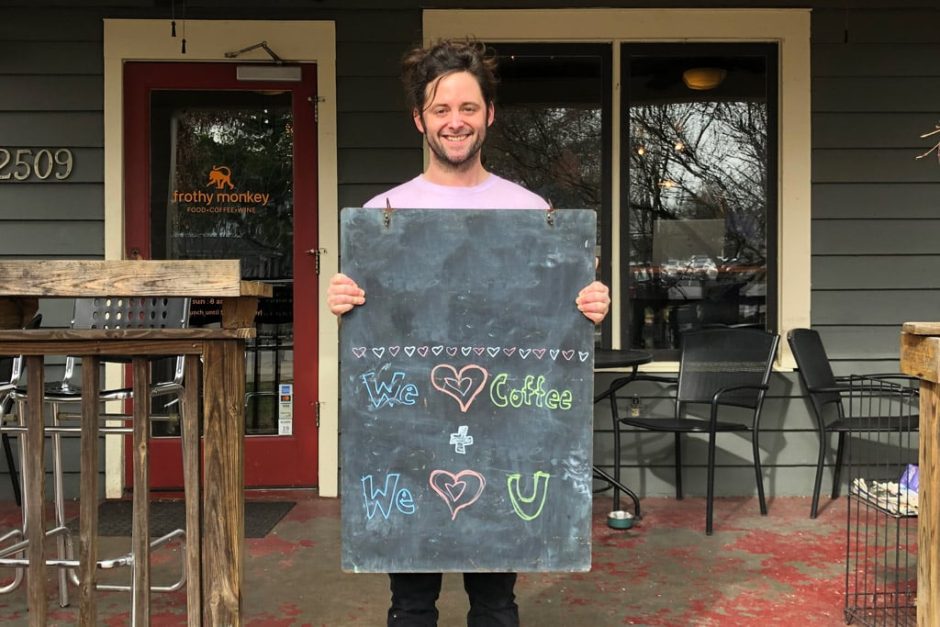 2509
frothy monkey
FOOD•COFFEE•WINE
We ♥ Coffee
+
We ♥ U